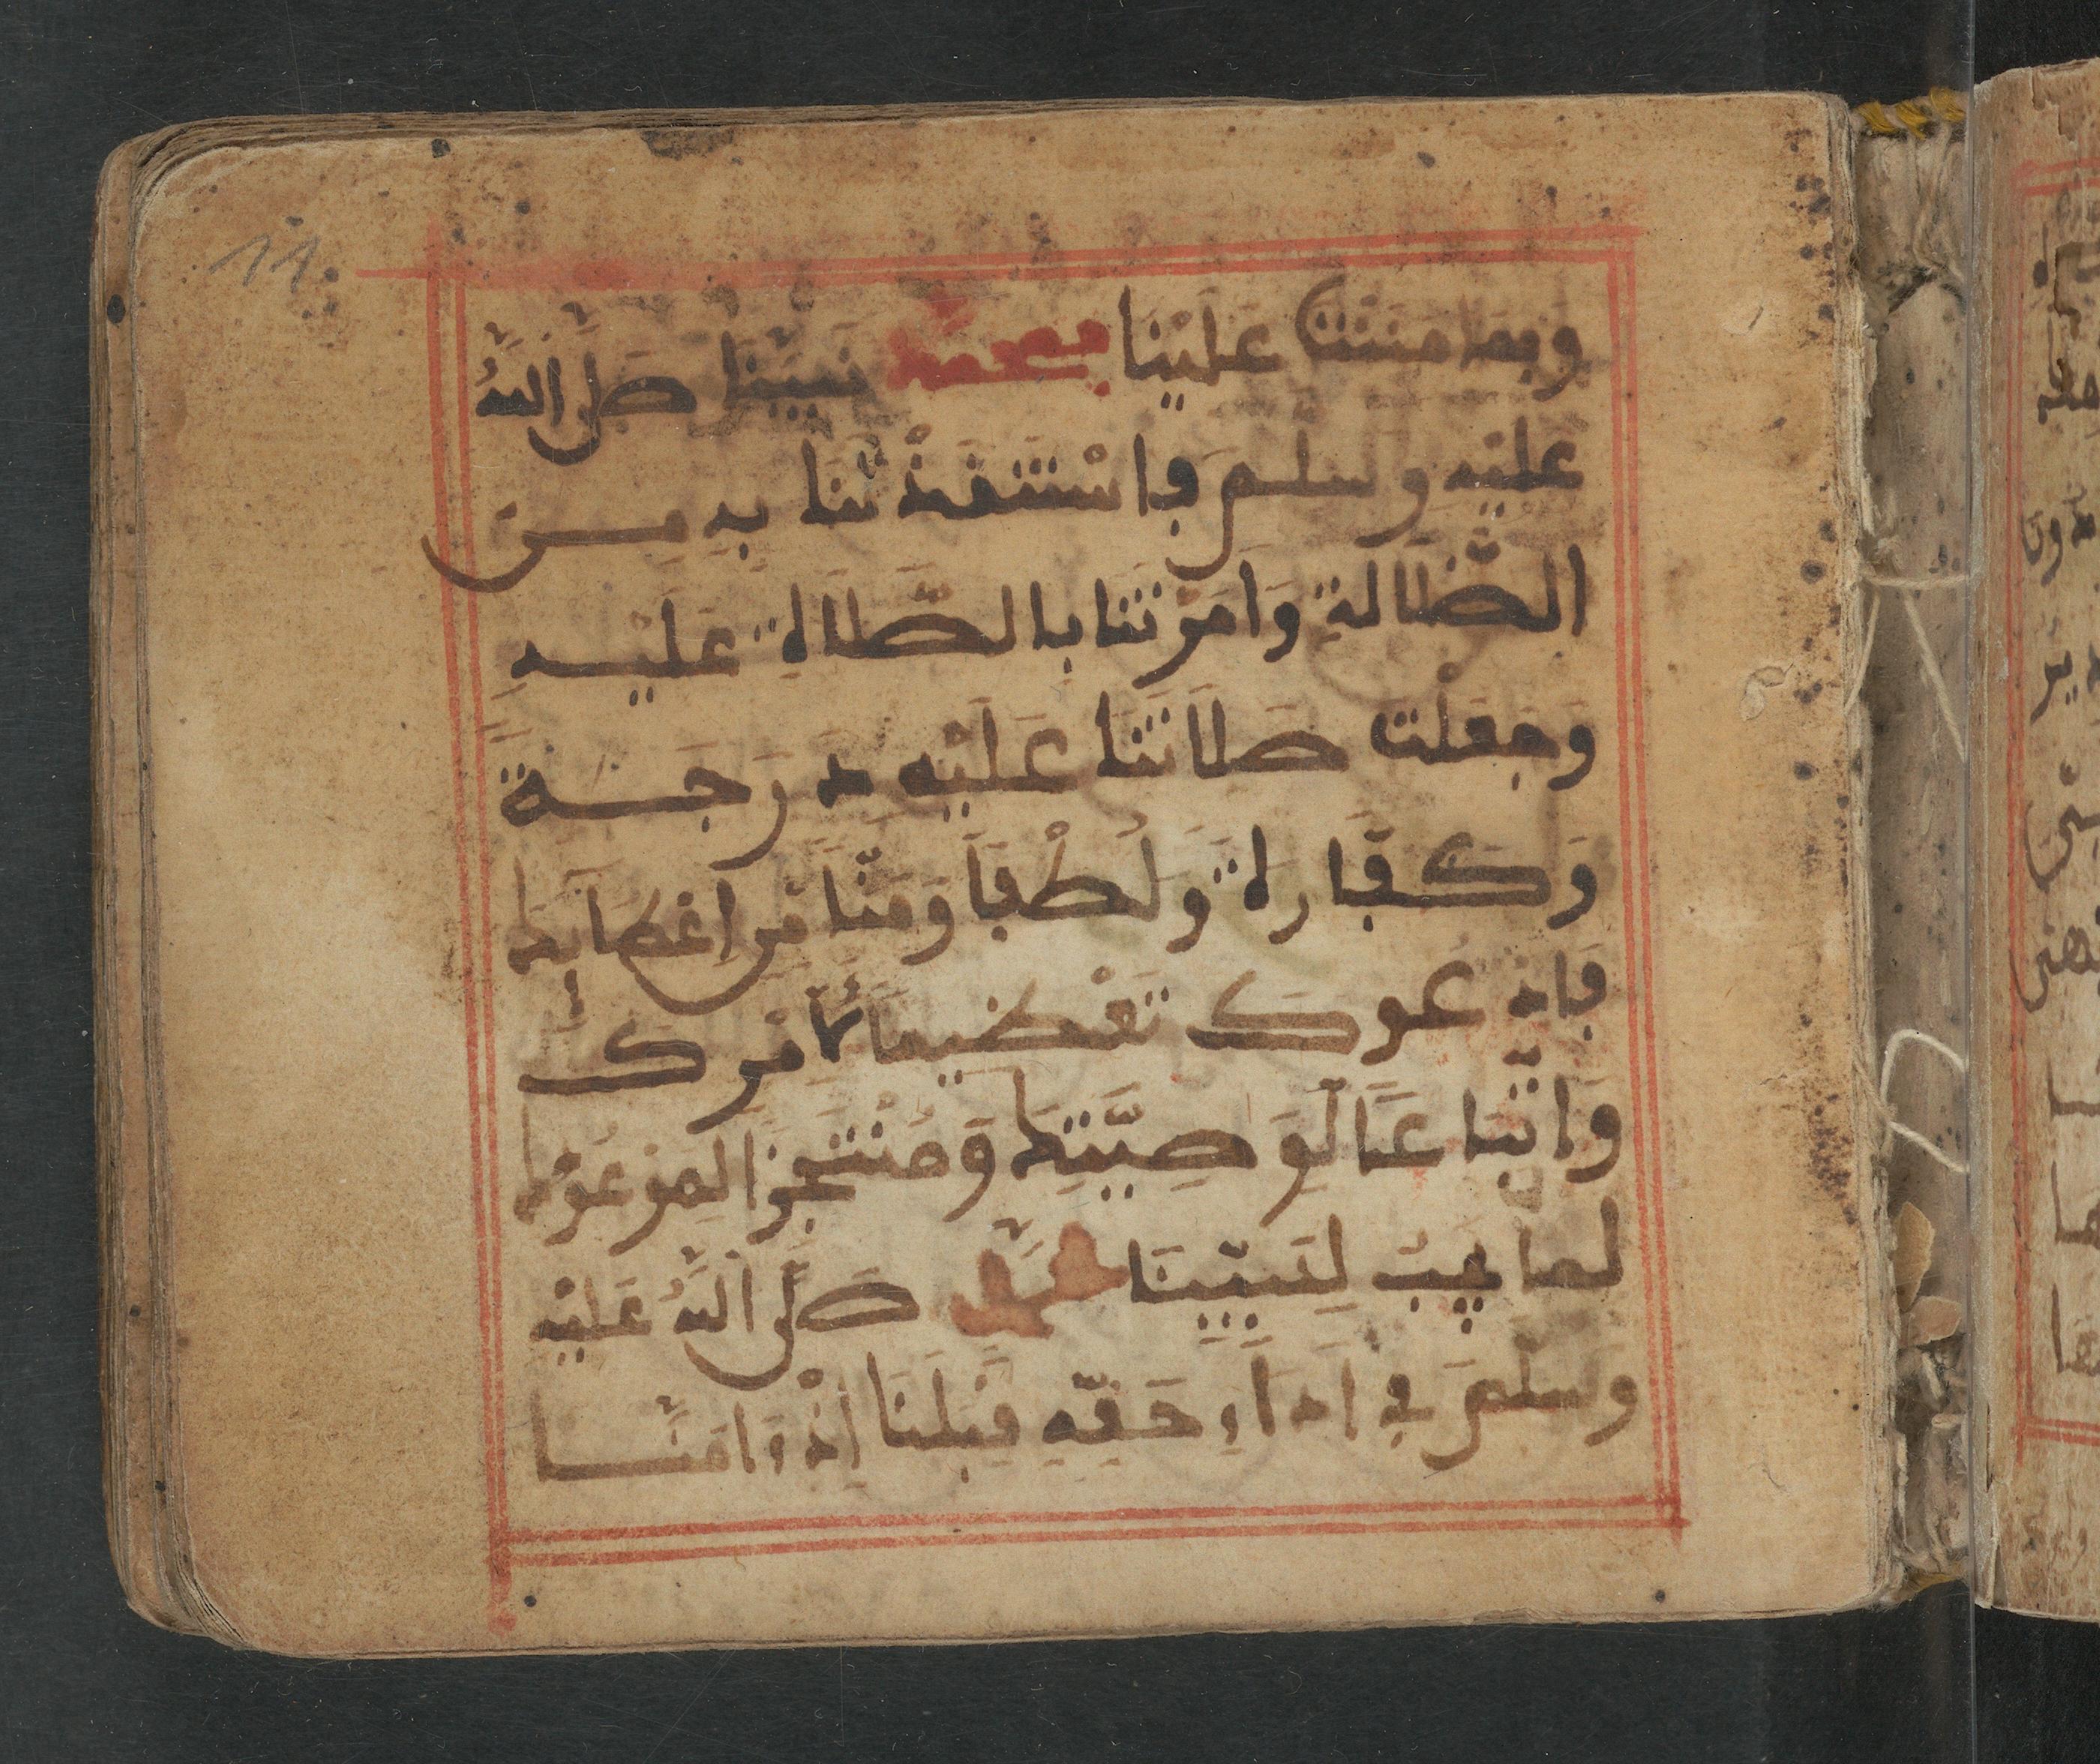 11
وَبِمَا مَنَنْتَ عَلَيْنَا بِمُحَمَّدٍ نَبِيِّنَا صَلَّى اللَّهُ
عَلَيْهِ وَسَلَّمَ فَاسْتَنْفَذْتَنَا بِهِ مِنَ
الضَّلَالَةِ وَأَمَرْتَنَا بِالصَّلَاةِ عَلَيْهِ
وَجَعَلْتَ صَلَاتَنَا عَلَيْهِ دَرَجَةً
وَكَفَّارَةً وَلُطْفًا وَمَنًّا مِنْ إِعْطَائِكَ
فَادْعُوكَ تَعْظِيمًا لِأَمْرِكَ
وَاتِّبَاعًا لِوَصِيَّتِكَ وَمُنْتَجِزًا لِمَوْعُودِكَ
لِمَا يَجِبُ لِنَبِيِّنَا مُحَمَّدٍ صَلَّى اللَّهُ عَلَيْهِ
وَسَلَّمَ فِي أَدَاءِ حَقِّهِ قِبَلَنَا إِذْ ءَامَنَّا